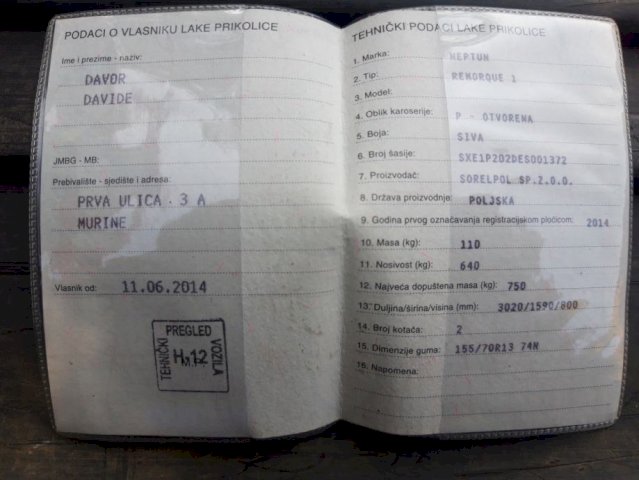 PODACI O VLASNIKU LAKE PRIKOLICE
Ime i prezime - naziv:
DAVOR
DAVIDE
JMBG - MB:
Prebivalište - sjedište i adresa:
PRVA ULICA . 3 A
MURINE
Vlasnik od: 11.06.2014
TEHNIČKI PREGLED VOZILA
H 12
TEHNIČKI PODACI LAKE PRIKOLICE
1. Marka: NEPTUN
2. Tip: REMORQUE 1
3. Model:
4. Oblik karoserije: P - OTVORENA
5. Boja: SIVA
6. Broj šasije: SXE1P202DES001372
7. Proizvođač: SORELPOL SP.Z.O.O.
8. Država proizvodnje: POLJSKA
9. Godina prvog označavanja registracijskom pločicom: 2014
10. Masa (kg): 110
11. Nosivost (kg): 640
12. Najveća dopuštena masa (kg): 750
13. Duljina/širina/visina (mm): 3020/1590/800
14. Broj kotača: 2
15. Dimenzije guma: 155/70R13 74N
16. Napomena: